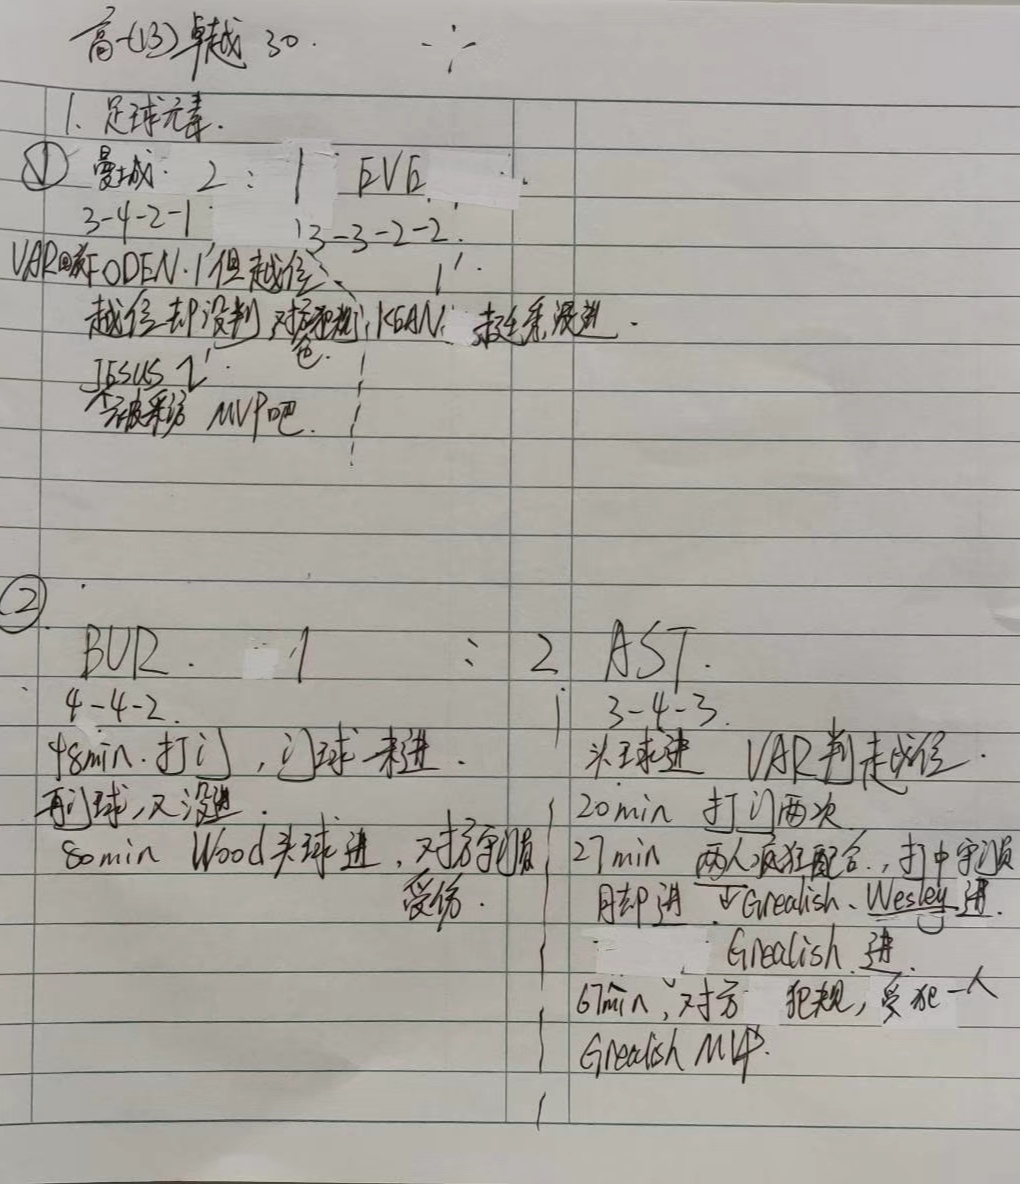 高一(13) 卓越 30.
1. 足球元素.
① 曼城. 2 : 1 EVE
3-4-2-1
3-3-2-2.
VAR FODEN. 1' 但越位
1'.
越位却没判 对方犯规, KEAN 未进.
JESUS 2'.
会被采访 MVP吧.
②
BUR. 1 : 2 AST.
4-4-2.
3-4-3.
48min. 打门, 门球 未进.
再门球, 又没进.
80min Wood头球进, 对方守门员
受伤.
头球进 VAR判越位.
20min 打门两次
27min 两人疯狂配合., 打中守门员
却进 Grealish、Wesley 进.
Grealish 进.
67min, 对方 犯规, 受犯一人
Grealish MVP.